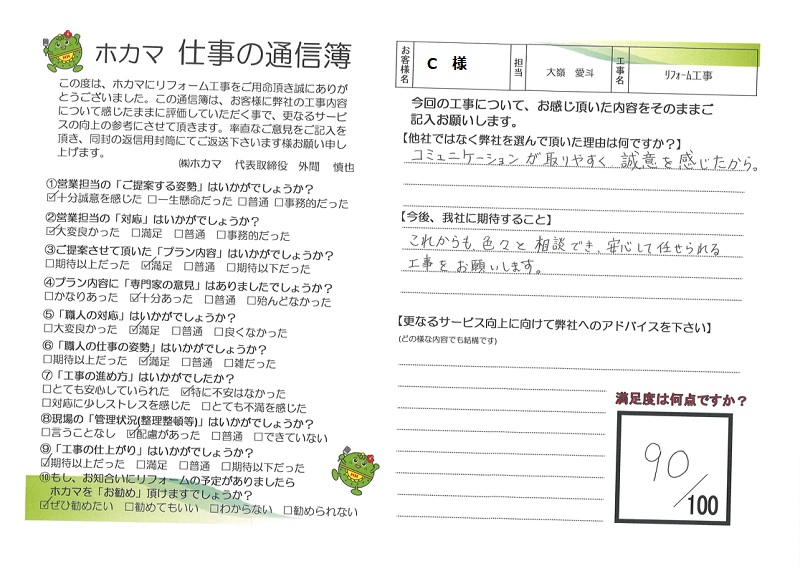 ホカマ 仕事の通信簿
この度は、ホカマにリフォーム工事をご用命頂き誠にありが
とうございました。この通信簿は、お客様に弊社の工事内容
について感じたままに評価していただく事で、更なるサービ
スの向上の参考にさせて頂きます。率直なご意見をご記入を
頂き、同封の返信用封筒にてご返送下さいます様お願い申し
上げます。
㈱ホカマ 代表取締役 外間 慎也
①営業担当の「ご提案する姿勢」はいかがでしょうか?
☑十分誠意を感じた □一生懸命だった □普通 □事務的だった
②営業担当の「対応」はいかがでしょうか?
☑大変良かった □満足 □普通 □事務的だった
③ご提案させて頂いた「プラン内容」はいかがでしょうか?
□期待以上だった ☑満足 □普通 □期待以下だった
④プラン内容に「専門家の意見」はありましたでしょうか?
□かなりあった ☑十分あった □普通 □殆んどなかった
⑤「職人の対応」はいかがでしょうか?
□大変良かった ☑満足 □普通 □良くなかった
⑥「職人の仕事の姿勢」はいかがでしょうか?
□期待以上だった ☑満足 □普通 □雑だった
⑦「工事の進め方」はいかがでしたか?
□とても安心していられた ☑特に不安はなかった
□対応に少しストレスを感じた □とても不満を感じた
⑧現場の「管理状況(整理整頓等)」はいかがでしょうか?
□言うことなし ☑配慮があった □普通 □できていない
⑨「工事の仕上がり」はいかがでしょうか?
☑期待以上だった □満足 □普通 □期待以下だった
⑩もし、お知合いにリフォームの予定がありましたら
ホカマを「お勧め」頂けますでしょうか?
☑ぜひ勧めたい □勧めてもいい □わからない □勧められない
お客様名 C 様 担当 大嶺 愛斗 工事名 ﾘﾌｫｰﾑ工事
今回の工事について、お感じ頂いた内容をそのままご
記入お願いします。
【他社ではなく弊社を選んで頂いた理由は何ですか?】
コミュニケーションが取りやすく 誠意を感じたから。
【今後、我社に期待すること】
これからも、色々と相談でき、安心して任せられる
工事をお願いします。
【更なるサービス向上に向けて弊社へのアドバイスを下さい】
(どの様な内容でも結構です)
満足度は何点ですか?
90/100